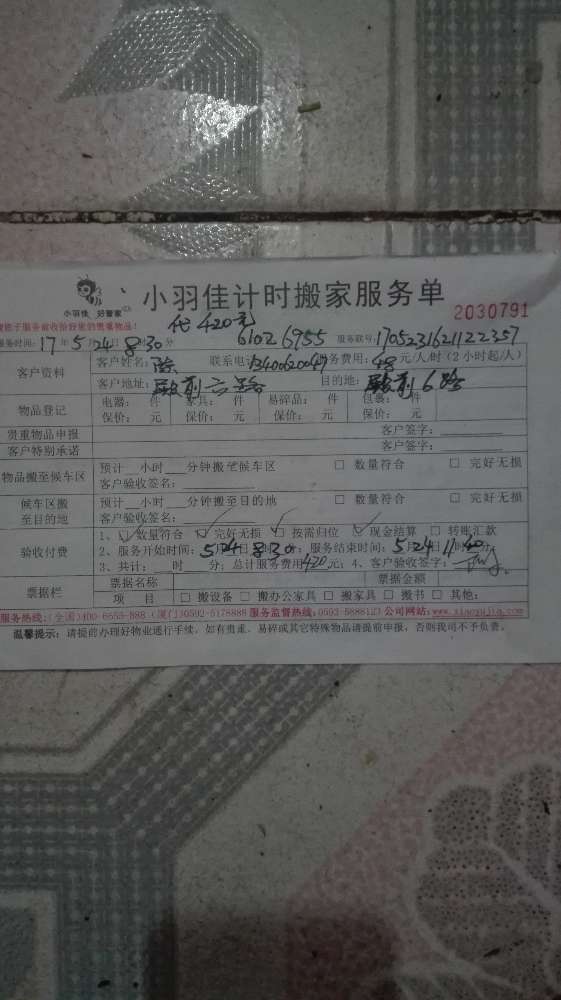 小羽佳 好管家
小羽佳计时搬家服务单
2030791
代 420元
61026955 服务联号:170523162112 2357
服务时间:17年5月24日8时30分
客户资料 客户姓名:陈 联系电话 服务费用:48元/人/时(2小时起/人)
客户地址: 前六路 目的地: 前6路
物品登记 电器: 件 家具: 件 易碎品: 件 包裹: 件
保价: 元 保价: 元 保价: 元 保价: 元
贵重物品申报 客户签字:
客户特别承诺 客户签字:
物品搬至候车区 预计 小时 分钟搬至候车区 □ 数量符合 □ 完好无损
客户验收签名:
候车区搬至目的地 预计 小时 分钟搬至目的地 □ 数量符合 □ 完好无损
客户验收签名:
验收付费 1、☑ 数量符合 ☑ 完好无损 ☑ 按需归位 ☑ 现金结算 □ 转账汇款
2、服务开始时间:5月24日8时30分;服务结束时间:5月24日11时40分
3、共计: 时 分;总计服务费用420元;4、客户验收签字:
票据栏 票据名称 票据金额
项 目 □ 搬设备 □ 搬办公家具 □ 搬家具 □ 搬书 □ 其他:
服务热线:(全国)400-6653-888 (厦门)0592-5178889 服务监督热线:0592-5888123 公司网站:www.xiaoyujia.com
温馨提示:请提前办理好物业通行手续,如有贵重、易碎或其它特殊物品请提前申报,否则我司不予负责。